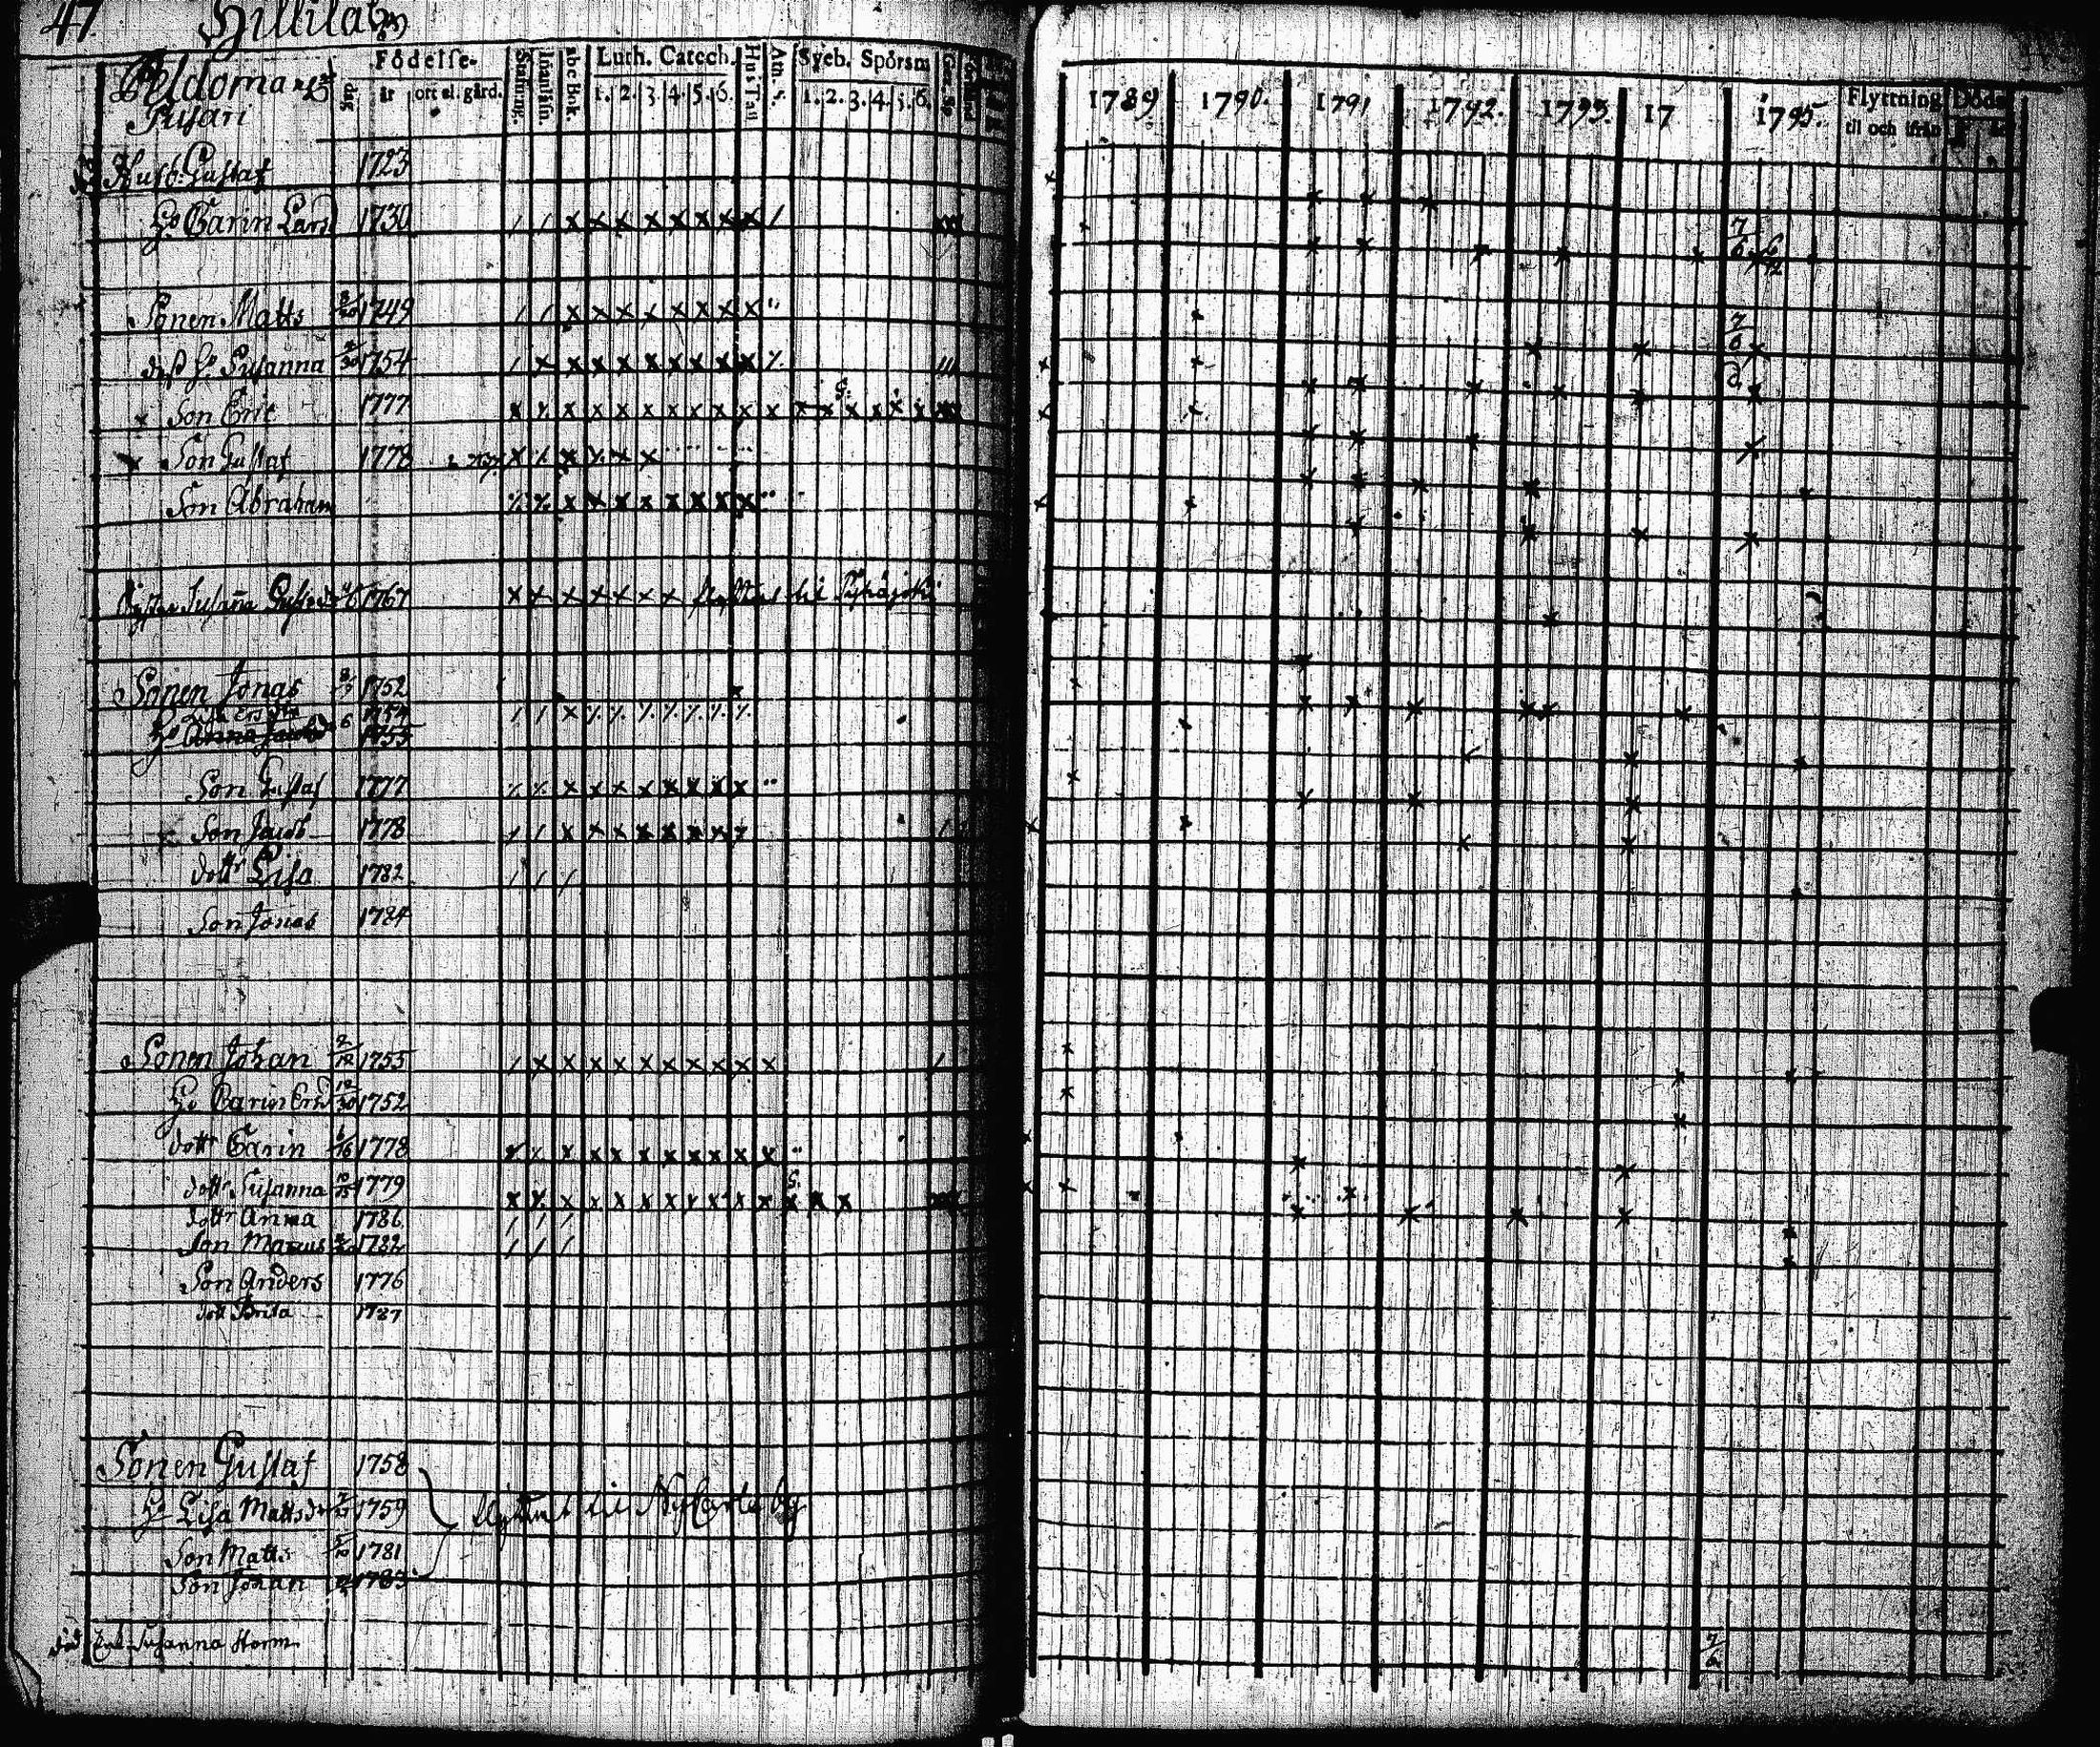 47. Hillilä by
Peldoma
Pusari
Födelse-
dag
år
ort el. gård.
Stafning.
Innanläsn.
abc Bok.
Luth. Catech.
1. 2. 3. 4. 5. 6.
Hus Tafl
Ath. s.
Sveb. Spörsm
1. 2. 3. 4. 5. 6.
1789 1790. 1791 1792. 1793. 17 1795.
Flyttning
til och ifrån
Döde
Husb. Gustaf 1723
H:o Carin Lars 1730
Sonen Matts 1749
dess H:o Susanna 1754
Son Eric 1777
Son Gustaf 1778
Son Abraham
Susanna 1767 flyttat til Pyhäjoki
Sonen Jonas 8/7 1752
1754
H:o Anna 1755
Son Gustaf 1777
Son Jacob 1778
dottr Lisa 1782
Son Jonas 1784
Sonen Johan 1755
H:o Carin Ersd 1752
dottr Carin 1778
dottr Susanna 1779
dottr Anna 1786
Son Marcus 1782
Son Anders 1776
dott Brita 1787
Sonen Gustaf 1758
H:o Lisa Mattsdr 1759 flyttat til NyCarleby
Son Matts 1781
Son Johan 1783
död Enk. Susanna Horm